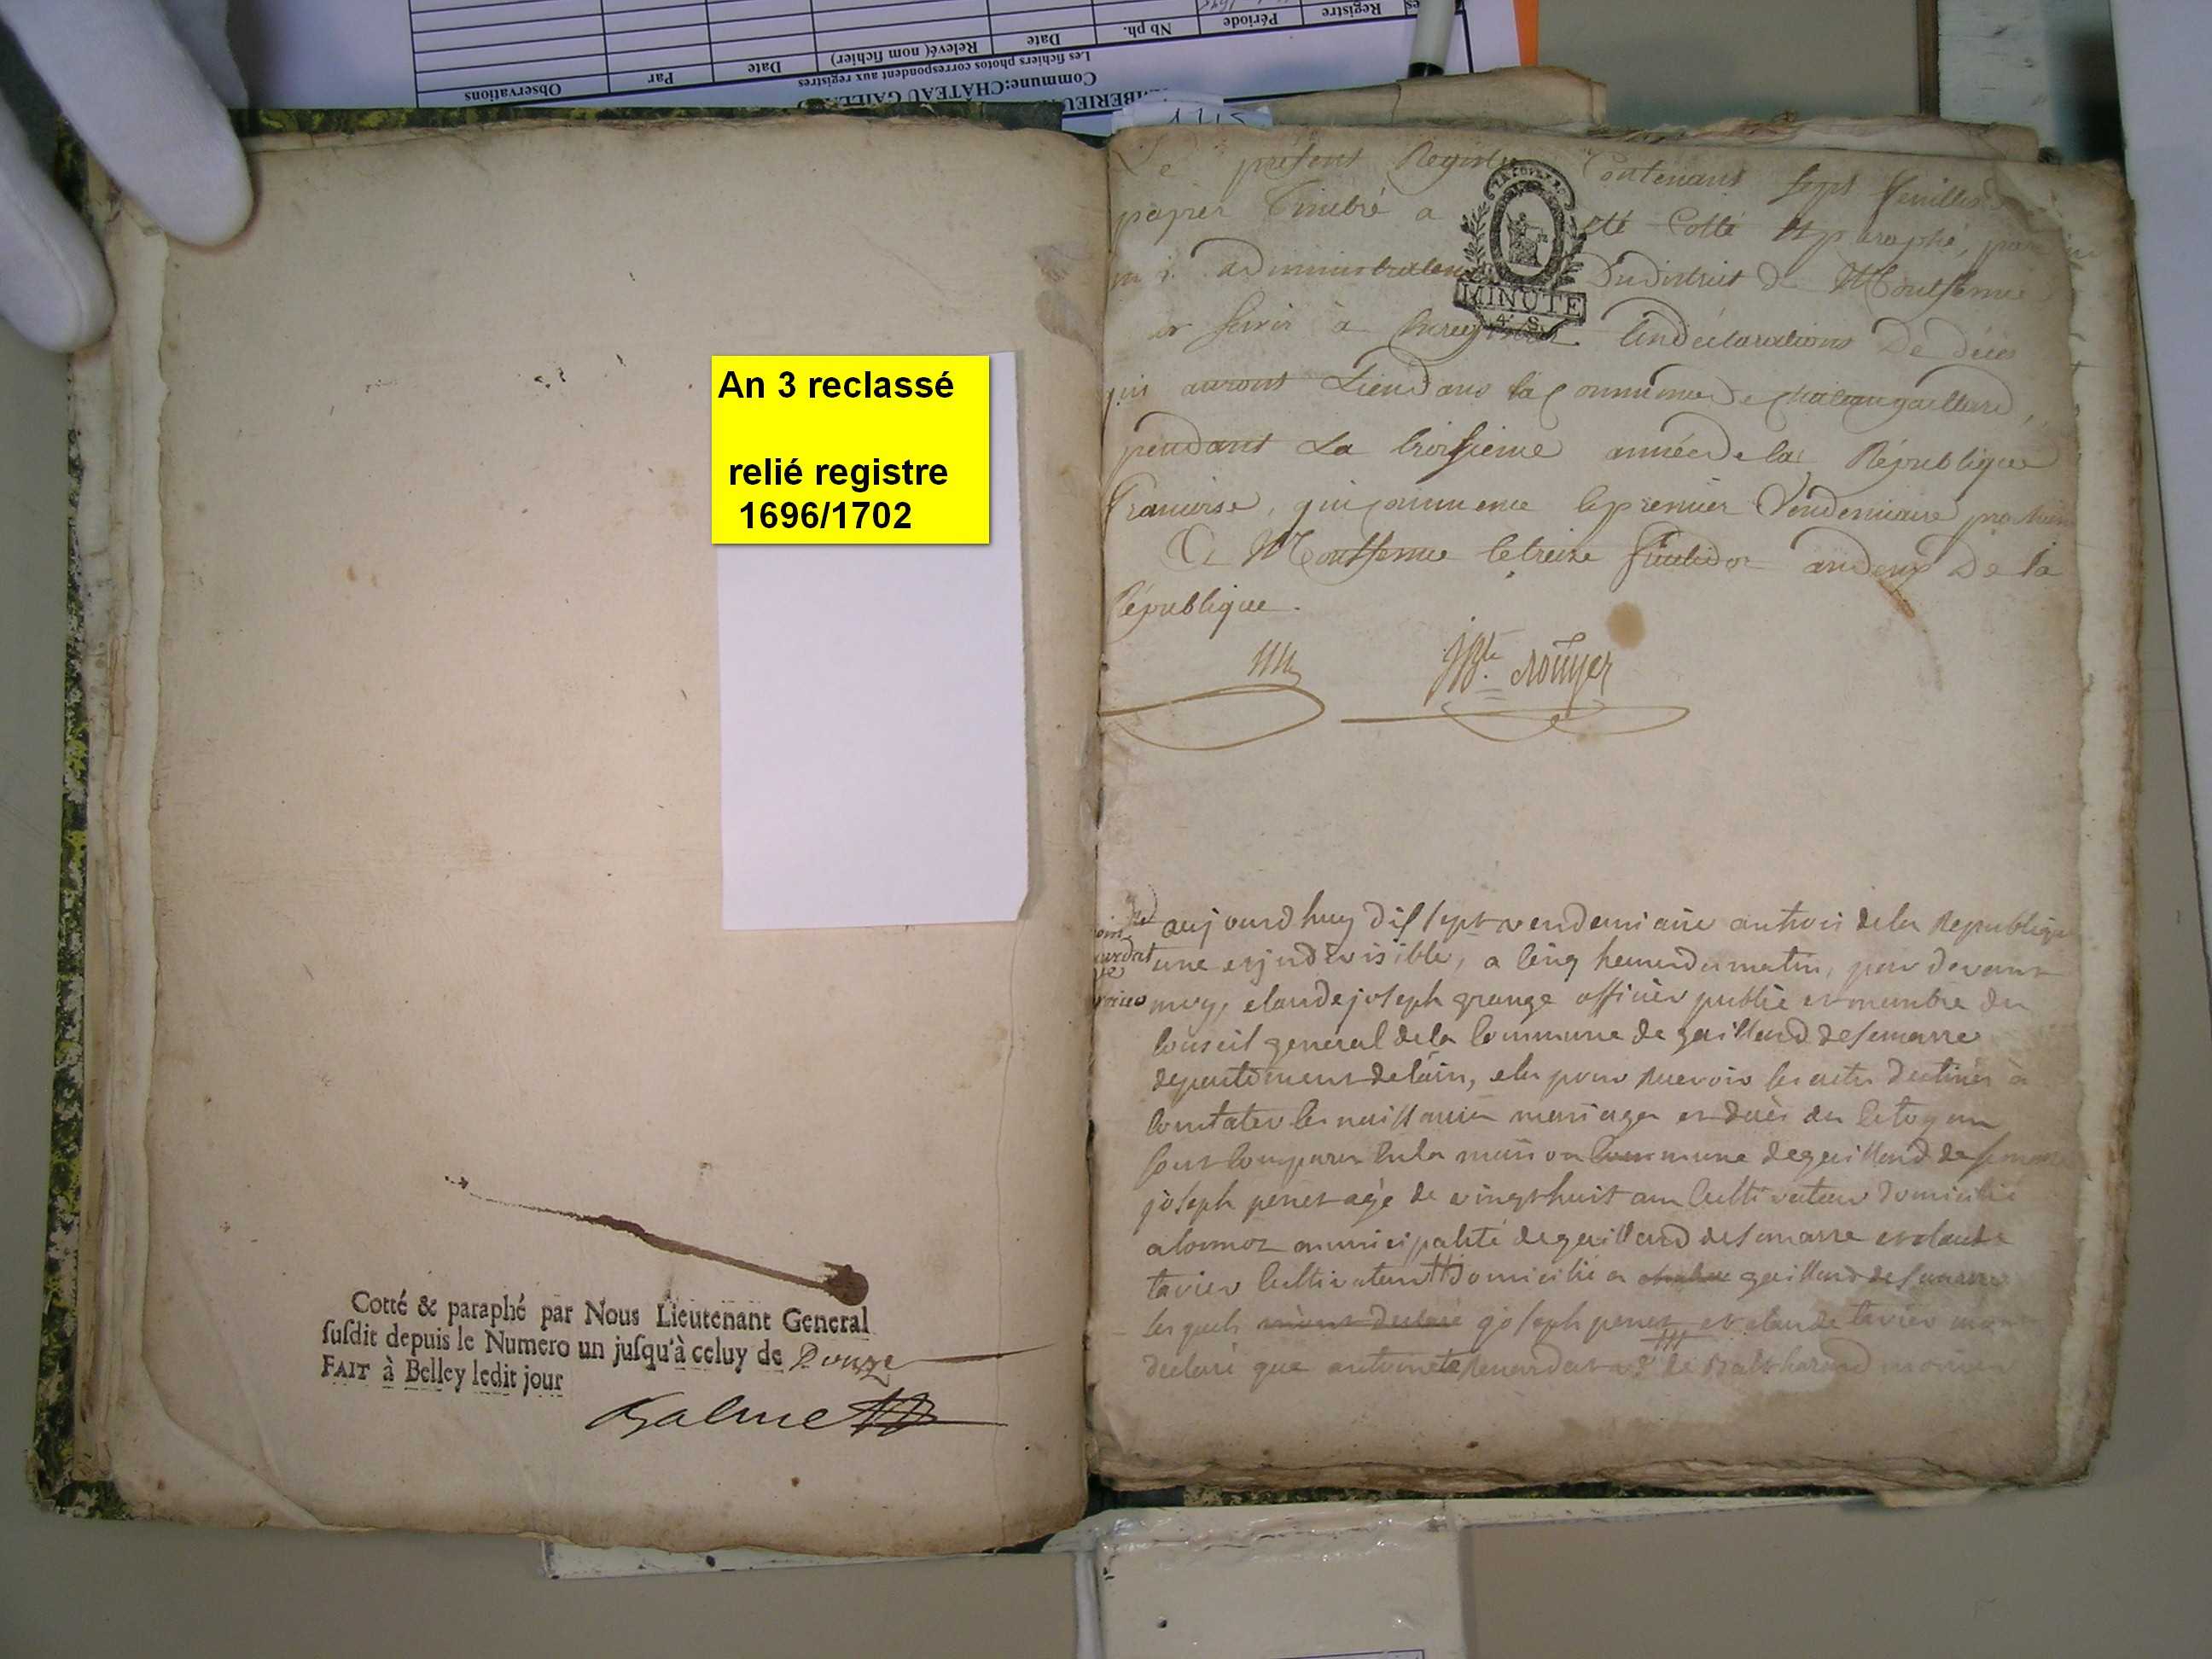 Observations
Par
Date
Relevé (nom fichier)
Date
Nb ph.
Période
Registre
Les fichiers photos correspondent aux registres
Commune:CHÂTEAU GAILLA
MBERIEU
An 3 reclassé
relié registre
1696/1702
Cotté & paraphé par Nous Lieutenant General
susdit depuis le Numero un jusqu'à celuy de Douze
FAIT à Belley ledit jour
Balme
Le présent Registre Contenant sept feuilles
papier Timbré a eté Cotté et paraphé, par
administrateur du district de Montferme
servir à Enregistrer les déclarations De décès
qui auront Lieu dans la Commune de chateaugaillard,
pendant La troisieme année de la République
francaise, qui commence le premier Vendemiaire prochain
A Montferme le treize fructidor an deux De la
République.
MINUTE
4. S.
JBte. Roüyer
aujourdhuy dis sept vendemiaire an trois de la Republique
une et jndivisible, a cinq heures du matin, par devant
moy, claude joseph grange officier public et membre du
Conseil general de la Commune de gaillard de semarre
departement de lain, elu pour recevoir les actes destinés à
Constater les naissances mariages et decès des Citoyens
sont Comparus En la maison Commune de gaillard de semarre
joseph penet agé de vingt huit ans Cultivateur domicilié
a cormoz municipalité de gaillard de semarre et claude
tavier Cultivateur domicilié a gaillard de semarre
lesquels joseph penet et claude tavier mont
declaré que antoinete